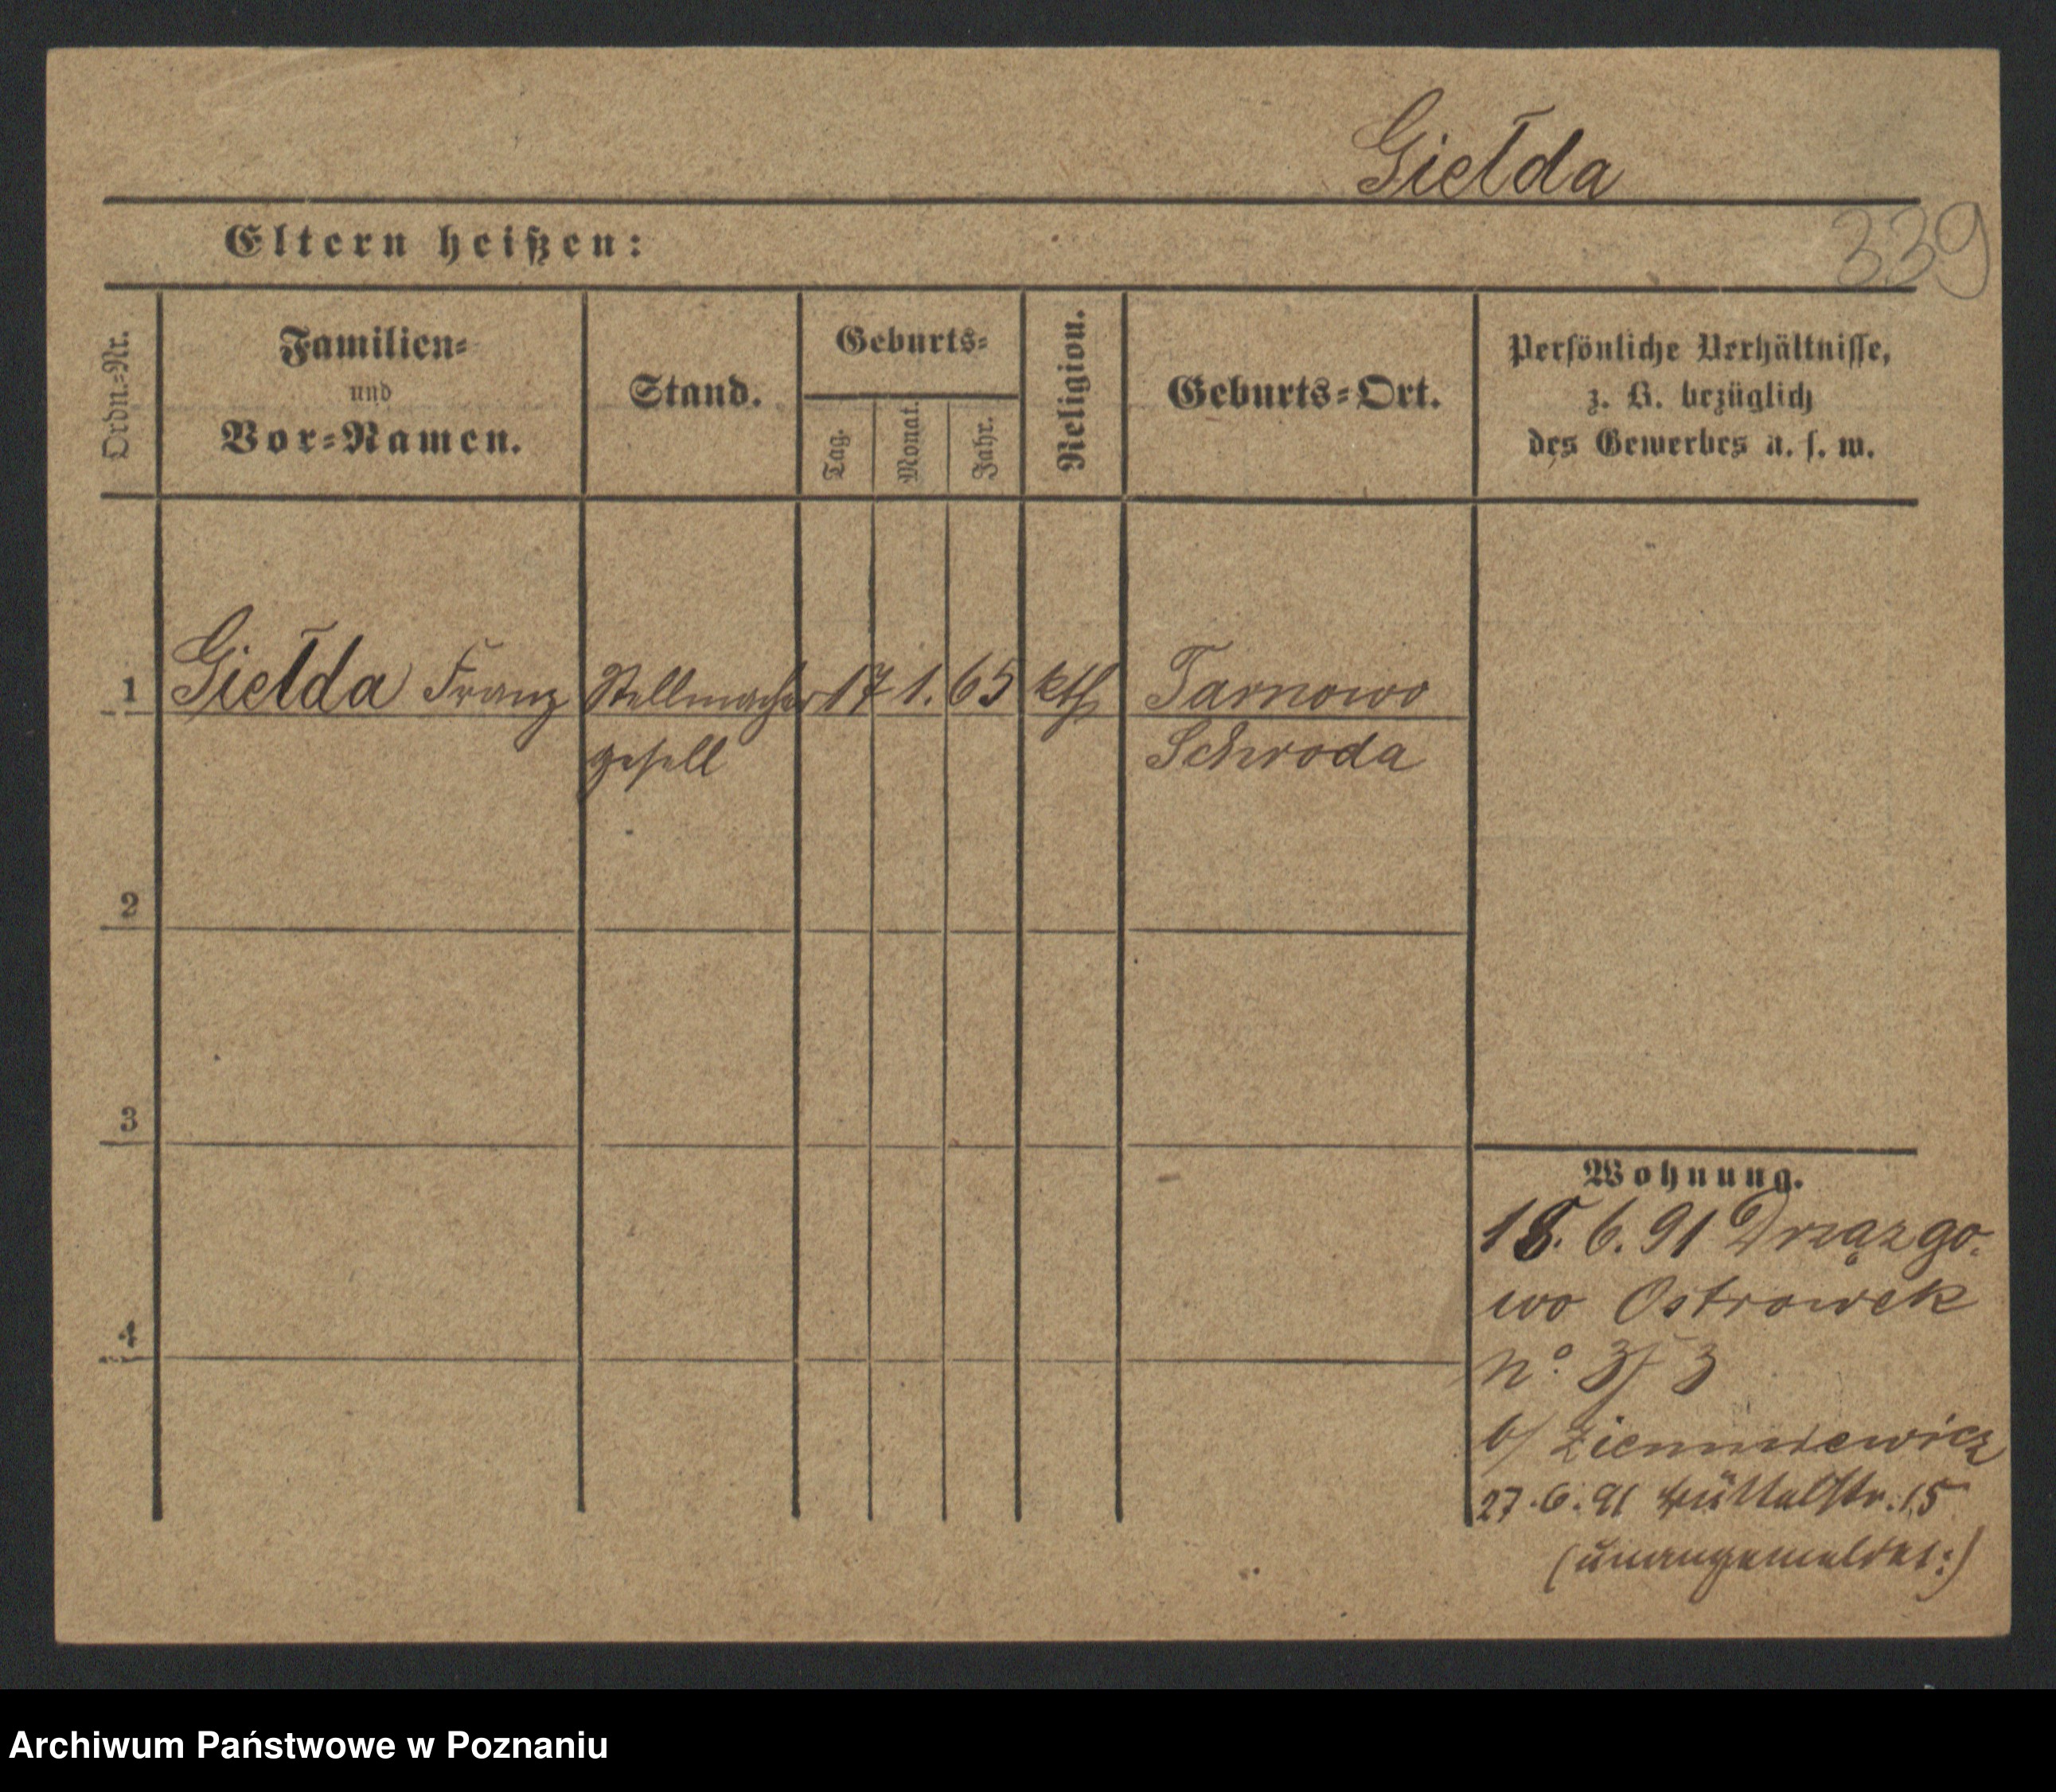 Giełda
339
Eltern heißen:
Ordn.=Nr.
Familien=
und
Vor=Namen.
Stand.
Geburts=
Tag.
Monat.
Jahr.
Religion.
Geburts=Ort.
Persönliche Verhältnisse,
z. B. bezüglich
des Gewerbes u. s. w.
1 Giełda Franz Stellmacher 17 1. 65 kth Tarnowo
gesell Schroda
2
3
4
Wohnung.
18. 6. 91 Drzązgo-
wo Ostrowek
No. 3
b/ Ziemniewicz
27. 6. 91 Büttelstr. 15
(unangemeldet:)
Archiwum Państwowe w Poznaniu